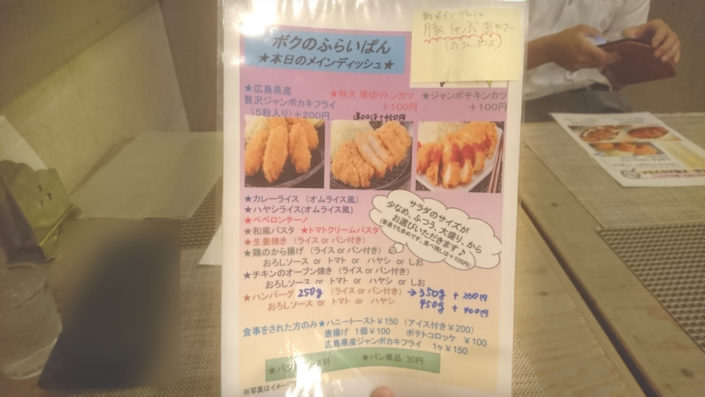 ボクのふらいぱん
★本日のメインディッシュ★
豚しゃぶ
(おろしポン酢)
★広島県産
贅沢ジャンボカキフライ
(5粒入り)＋200円
★特大 厚切りトンカツ
＋100円
★ジャンボチキンカツ
＋100円
★カレーライス （オムライス風）
★ハヤシライス(オムライス風)
★ペペロンチーノ
★和風パスタ ★トマトクリームパスタ
★生姜焼き （ライス or パン付き）
★鶏のから揚げ （ライス or パン付き）
おろしソース or トマト or ハヤシ or しお
★チキンのオーブン焼き （ライス or パン付き）
おろしソース or トマト or ハヤシ or しお
★ハンバーグ 250g （ライス or パン付き） → 350g ＋200円
おろしソース or トマト or ハヤシ 450g ＋400円
サラダのサイズが
少なめ、ふつう、大盛り、から
お選びいただきます♪
(普通でも多めです。食べ残しは＋100円)
食事をされた方のみ★ハニートースト￥150 （アイス付き￥200）
唐揚げ 1個￥100 ポテトコロッケ ￥100
広島県産ジャンボカキフライ 1ヶ￥150
★パン単品:30円
※写真はイメージ